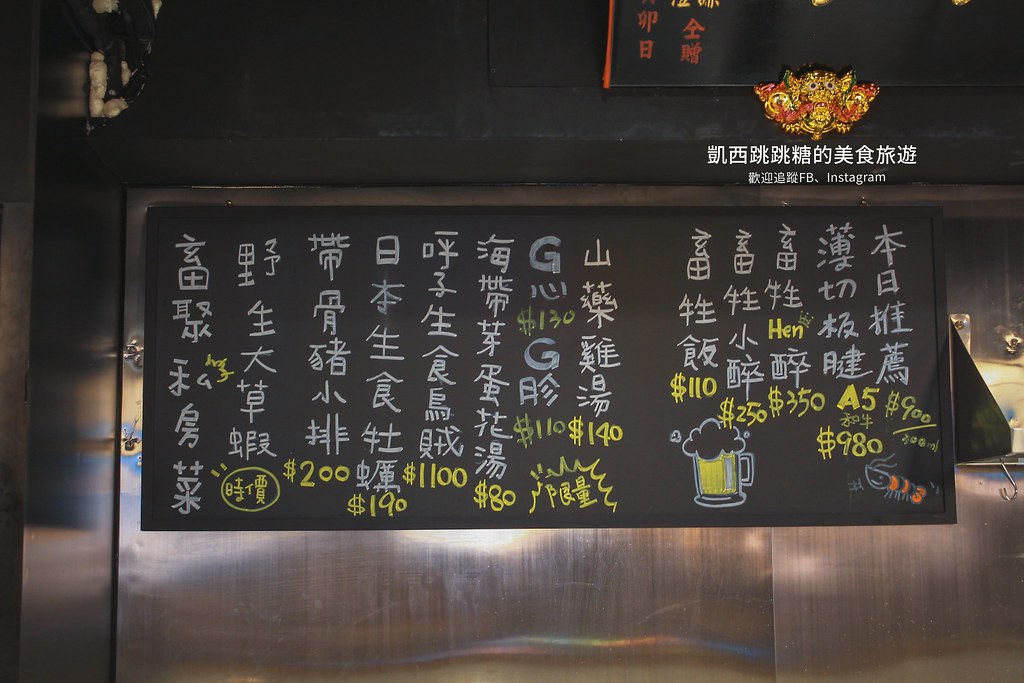 卯日
仝贈
凱西跳跳糖的美食旅遊
歡迎追蹤FB、Instagram
本日推薦
$900
300ml
薄切板腱
A5
和牛
$980
畜牲Hen醉
$350
畜牲小醉
$250
畜牲飯
$110
山藥雞湯
$140
G心
$130
G胗
$110
限量
海帶芽蛋花湯
$80
呼子生食烏賊
$1100
日本生食牡蠣
$190
帶骨豬小排
$200
野生大草蝦
時價
畜聚私房菜